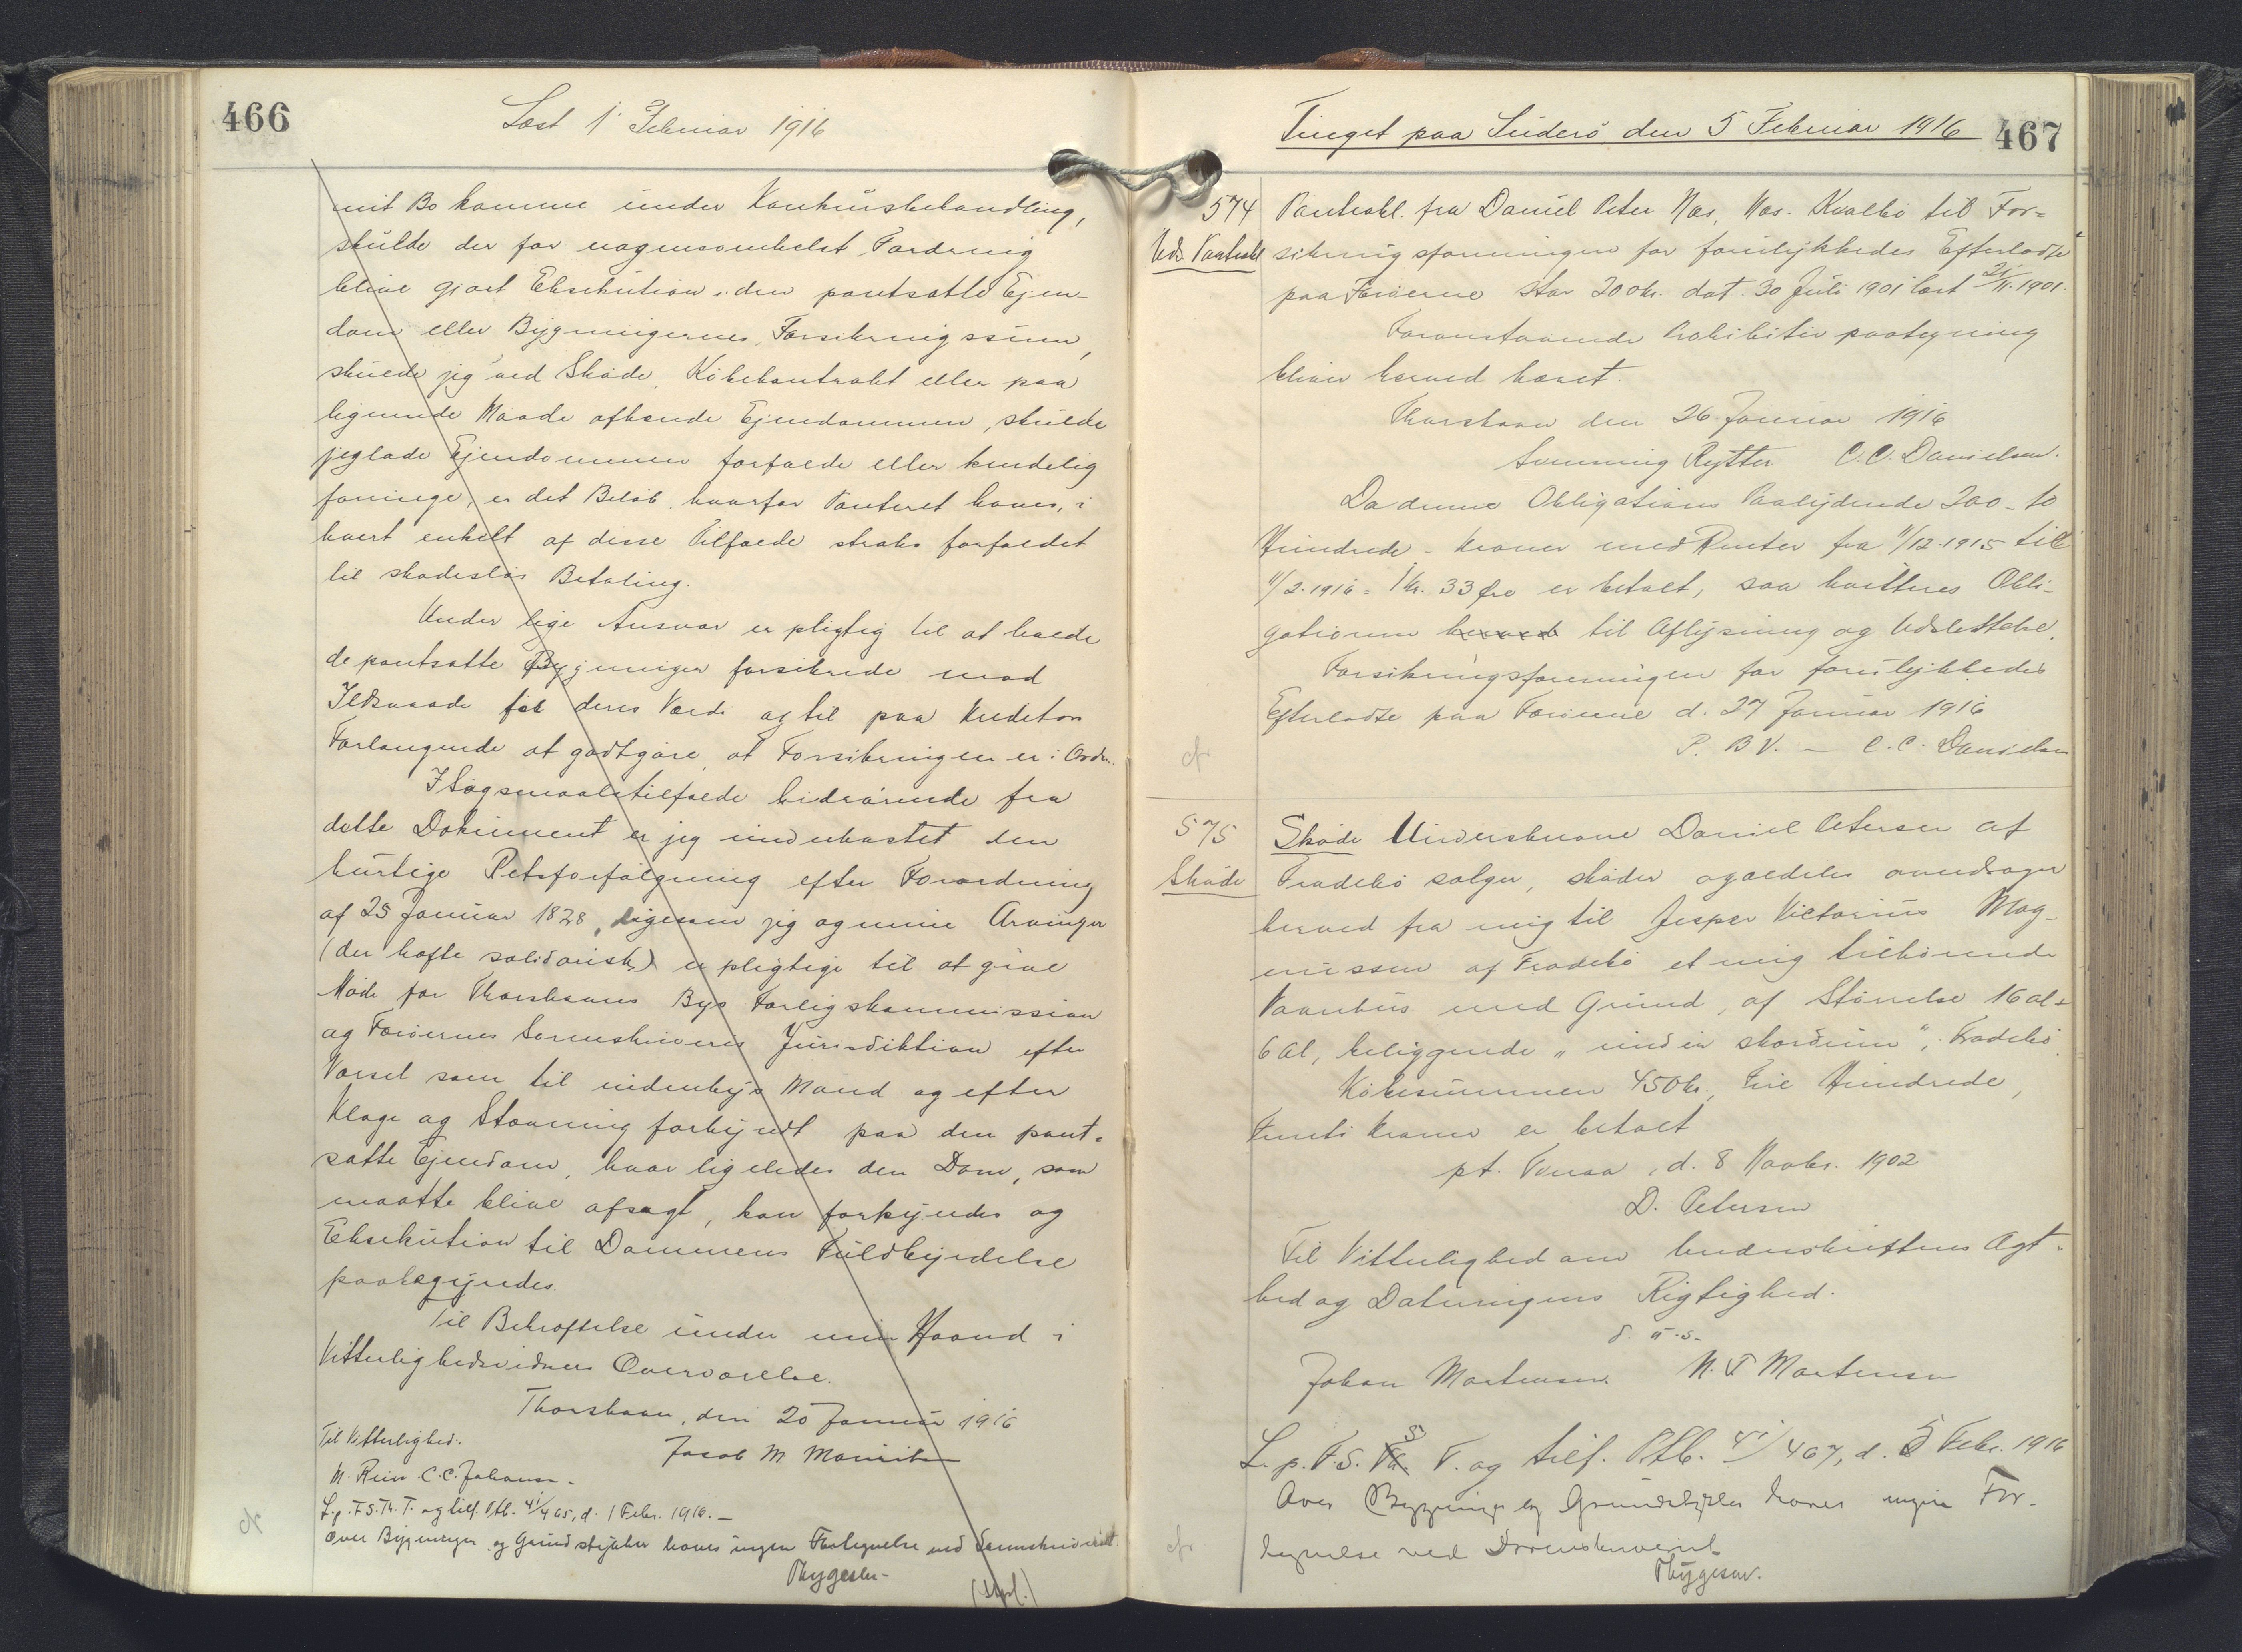 466
Læst 1' Februar 1916
mit Bo komme under Konkursbehandling,
skulde der for nogensomhelst Fordring
blive gjort Eksekution i den pantsatte Ejen-
dom eller Bygningernes Forsikringssum,
skulde jeg ved Skøde, Købekontrakt eller paa
lignende Maade afhænde Ejendommen, skulde
jeg lade Ejendommen forfalde eller kendelig
forringe, er det Beløb, hvorfor Panteret haves, i
hvert enkelt af disse Tilfælde straks forfaldet
til skadesløs Betaling.
Under lige Ansvar er pligtig til at holde
de pantsatte Bygninger forsikrede mod
Ildsvaade for deres Værdi og til paa Kreditors
Forlangende at godtgøre, at Forsikringen er i Orden.
I Søgsmaalstilfælde hidrørende fra
dette Dokument er jeg underkastet den
hurtige Retsforfølgning efter Forordning
af 25 Januar 1828, ligesom jeg og mine Arvinger
(der hæfte solidarisk) er pligtige til at give
Møde for Thorshavns Bys Forligskommission
og Færøernes Sorenskriveris Jurisdiktion efter
Varsel som til indenbys Mand og efter
Klage og Stævning forkyndt paa den pant-
satte Ejendom, hvor ligeledes den Dom, som
maatte blive afsagt, kan forkyndes og
Eksekution til Dommens Fuldbyrdelse
paabegyndes.
Til Bekræftelse under min Haand i
Vitterlighedsvidners Overværelse.
Thorshavn, den 20 Januar 1916
Til Vitterlighed: Jacob M Mouritsen
M. Rein C.C. Johansen.
L. p. F. S. Th. T. og tilf. Ptb. 4i/465, d. 1 Febr. 1916.—
Over Bygninger og Grundstykker haves ingen Fortegnelse ved Sorenskriveriet.
Thygesen-
Tinget paa Suderø den 5 Februar 1916
467
574 Panteobl. fra Daniel Peter Næs, Næs. Kvalbø til For-
Uds. Panteobl sikringsforeningen for forulykkedes Efterladte
paa Færøerne stor 200 kr. dat. 30 Juli 1901 læst 21/11.1901.
Foranstaaende Prohibitiv paategning
bliver herved hævet.
Thorshavn den 26 Januar 1916
Flemming Rytter C.C. Danielsen.
Da denne Obligations Paalydende 200 - to
Hundrede - Kroner med Renter fra 11/12.1915 til
11/2.1916 = 1 Kr. 33 Øre er betalt, saa kvitteres Obli-
gationen herved til Aflysning og Udslettelse.
Forsikringsforeningen for forulykkedes
Efterladte paa Færøerne d. 27 Januar 1916
P. B. V. — C. C. Danielsen
cfr
575 Skøde Underskrevne Daniel Petersen af
Skøde Frodebø sælger, skøder og aldeles overdrager
herved fra mig til Jesper Victorius Mag-
nussen af Frodebø et mig tilhørende
Vaanhus med Grund, af Størrelse 16 al x
6 Al, beliggende "undir skordum", Frodebø.
Købesummen 450 kr., Fire Hundrede,
Femti Kroner er betalt
pt. Tveraa, d. 8 Novbr. 1902
D. Petersen
Til Vitterlighed om Underskriftens Ægt-
hed og Dateringens Rigtighed.
d. u. s.
Johan Mortensen. N. F Mortensen
L. p. F. S. Th. S T. og tilf. Ptb. 4i/467, d. 5 Febr. 1916
Over Bygninger og Grundstykker haves ingen For-
cfr
tegnelse ved Sorenskriveriet
Thygesen.